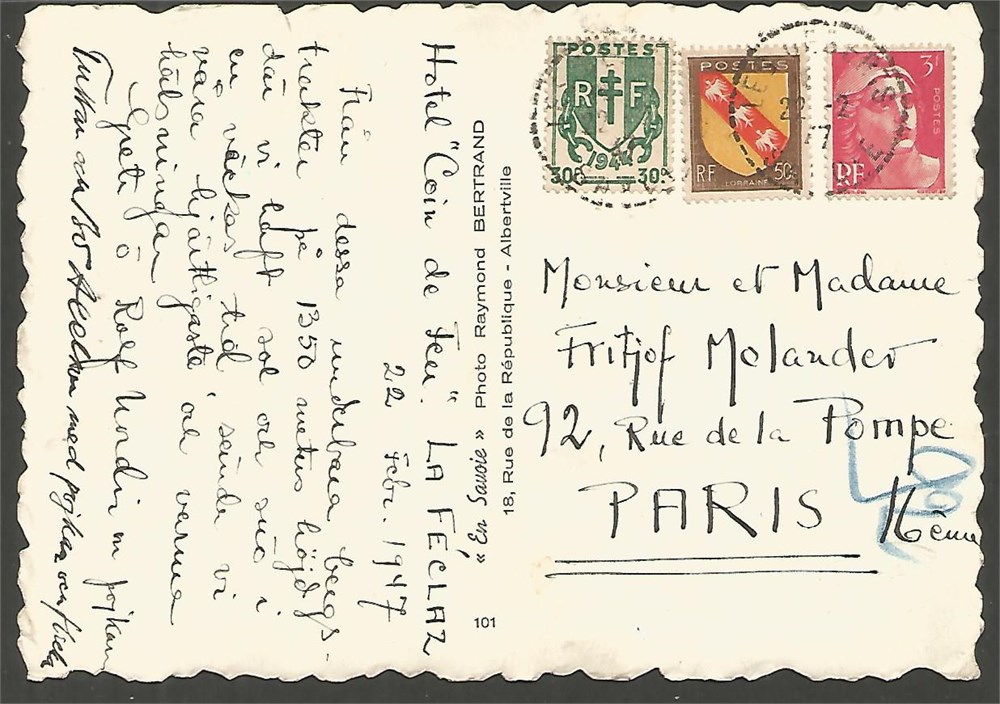 Hotel "Coin de Feu". LA FÉCLAZ
22 Febr. 1947
Från dessa underbara bergs-
trakter på 1350 meters höjd
där vi haft sol och snö i
en veckas tid, sända vi
våra hjärtligaste och varma
hälsningar
Greta o Rolf Nordin m pojkarna
med pojkar och flickor
« En Savoie » Photo Raymond BERTRAND
18, Rue de la République - Albertville
101
POSTES
RF
1944
30c 30c
POSTES
RF
LORRAINE
50c
3f
POSTES
RF
22 -2
47
Monsieur et Madame
Fritjof Molander
92, Rue de la Pompe
PARIS 16ème